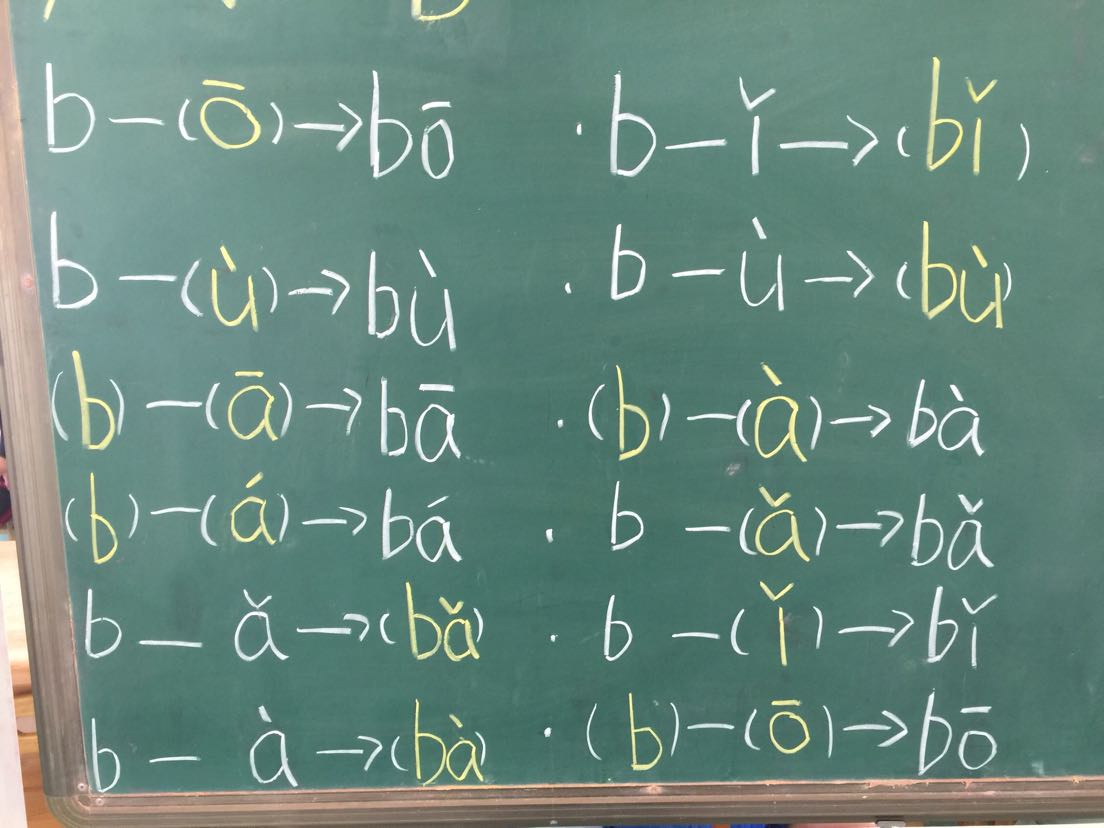 b－(ō)→bō · b－ǐ→(bǐ)
b－(ù)→bù · b－ù→(bù)
(b)－(ā)→bā · (b)－(à)→bà
(b)－(á)→bá · b－(ǎ)→bǎ
b－ǎ→(bǎ) · b－(ǐ)→bǐ
b－à→(bà) · (b)－(ō)→bō